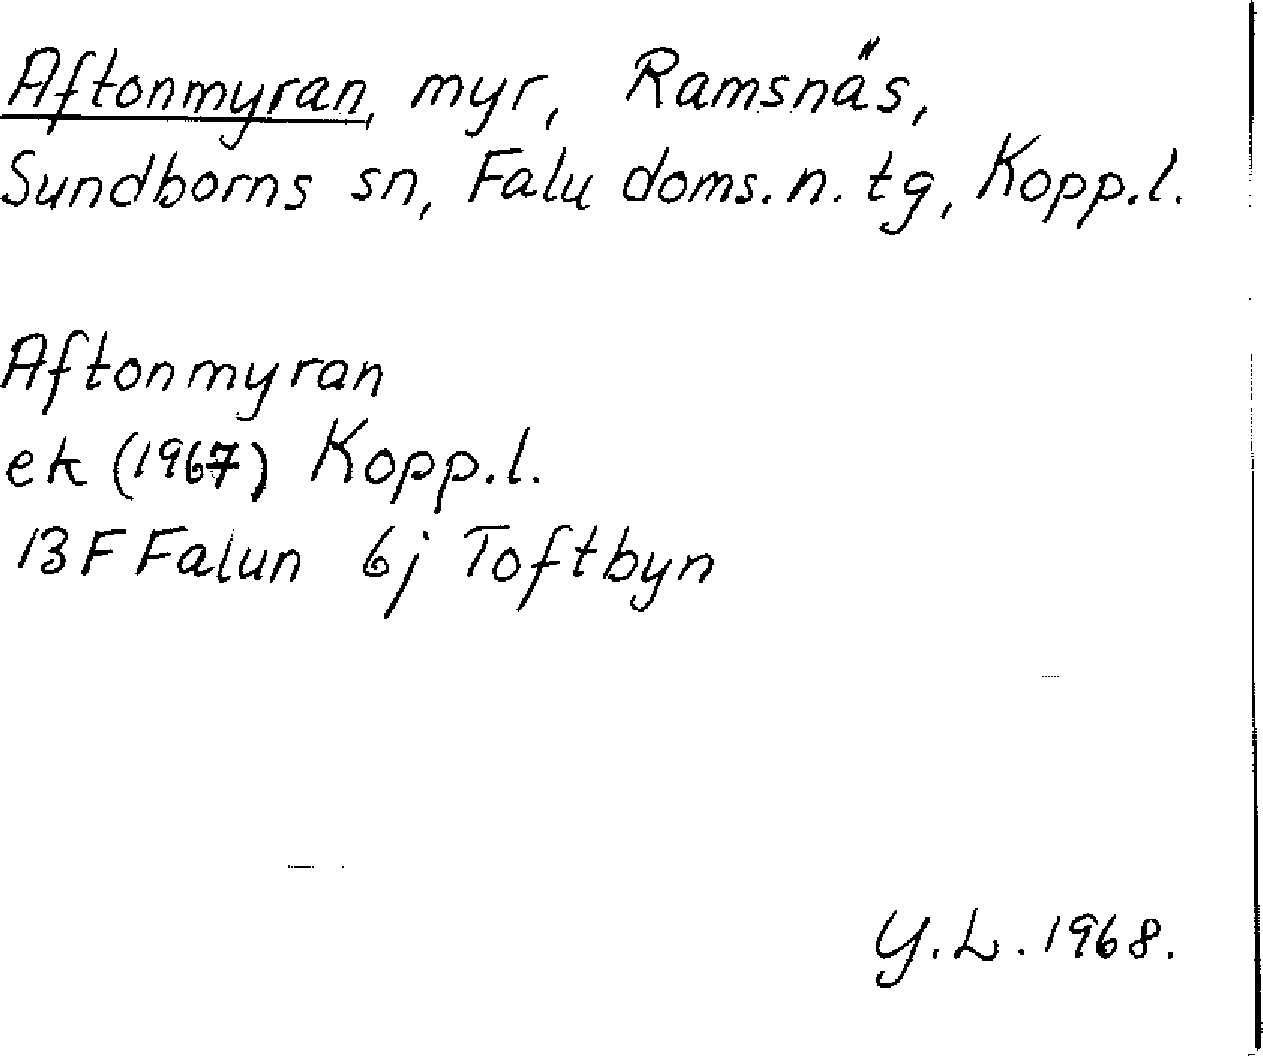 Aftonmyran, myr, Ramsnäs,
Sundborns sn, Falu doms.n. tg, Kopp.l.
Aftonmyran
ek (1967) Kopp.l.
13F Falun 6j Toftbyn
Y.L. 1968.